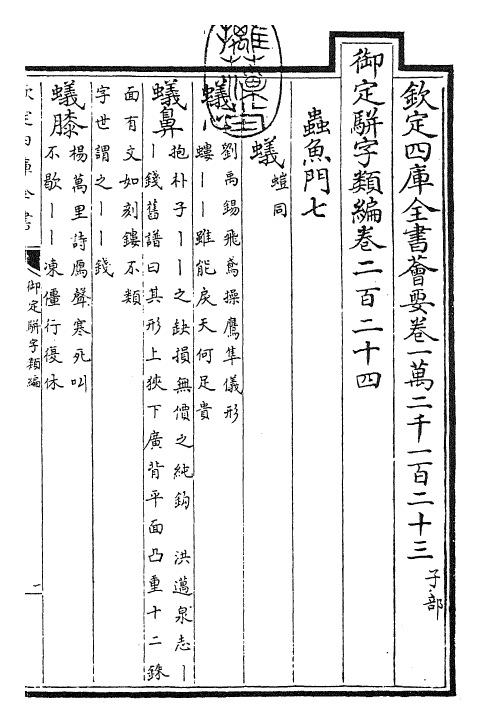 欽定四庫全書薈要卷一萬二千一百二十三 子部
御定駢字類編卷二百二十四
蟲魚門七
蟻 螘同
蟻心 劉禹錫飛鳶操鷹隼儀形
螻丨丨雖能戾天何足貴
蟻鼻 抱朴子丨丨之缺損無價之純鈞 洪邁泉志丨
丨錢舊譜曰其形上狹下廣背平面凸重十二銖
面有文如刻鏤不類
字世謂之丨丨錢
蟻膝 楊萬里詩厲聲寒死叫
不歇丨丨凍僵行復休
欽定四庫全書
御定駢字類編